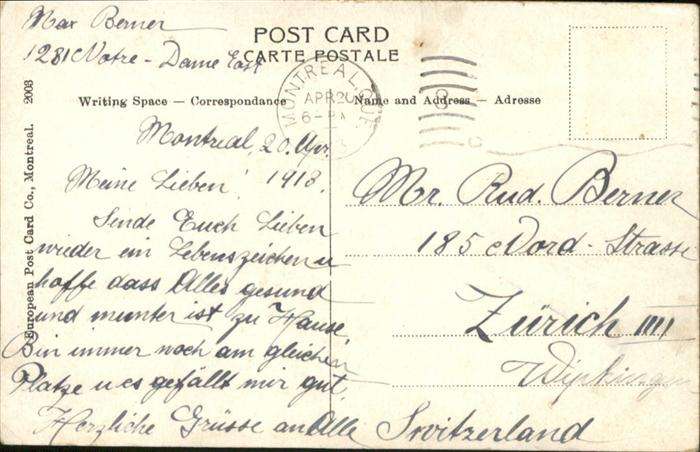 Max Berner
1281 Notre-Dame East
POST CARD
CARTE POSTALE
MONTREAL, QUE.
APR 20
6-PM
Writing Space — Correspondance
Name and Address — Adresse
European Post Card Co., Montreal. 2003
Montreal, 20. Apr.
1918.
Meine Lieben!
Sende Euch Lieben
wieder ein Lebenszeichen u
hoffe dass Alles gesund
und munter ist zu Hause,
Bin immer noch am gleichen
Platze u es gefällt mir gut.
Herzliche Grüsse an Alle
Mr. Rud. Berner
185 Nord-Strasse
Zürich IIII
Wipkingen
Switzerland